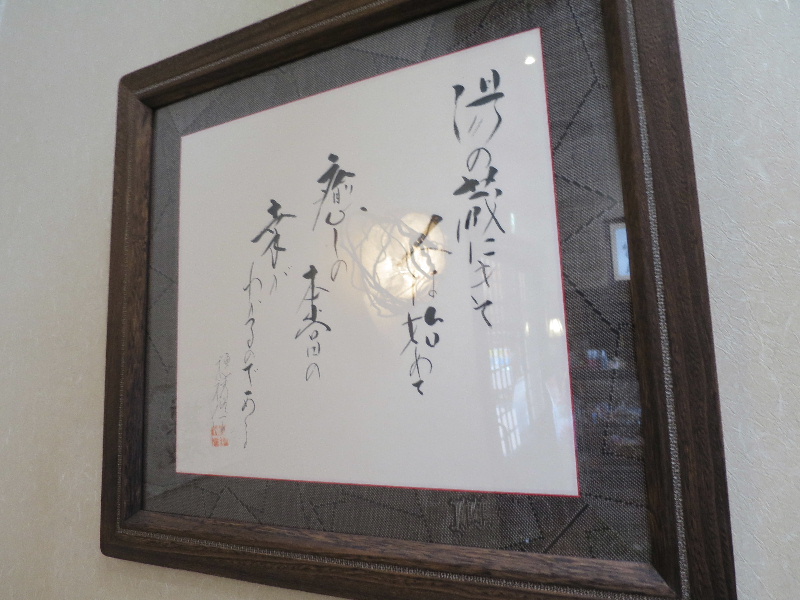 湯の蔵にきて
人は始めて
癒しの
本當の
幸が
わかるのであ